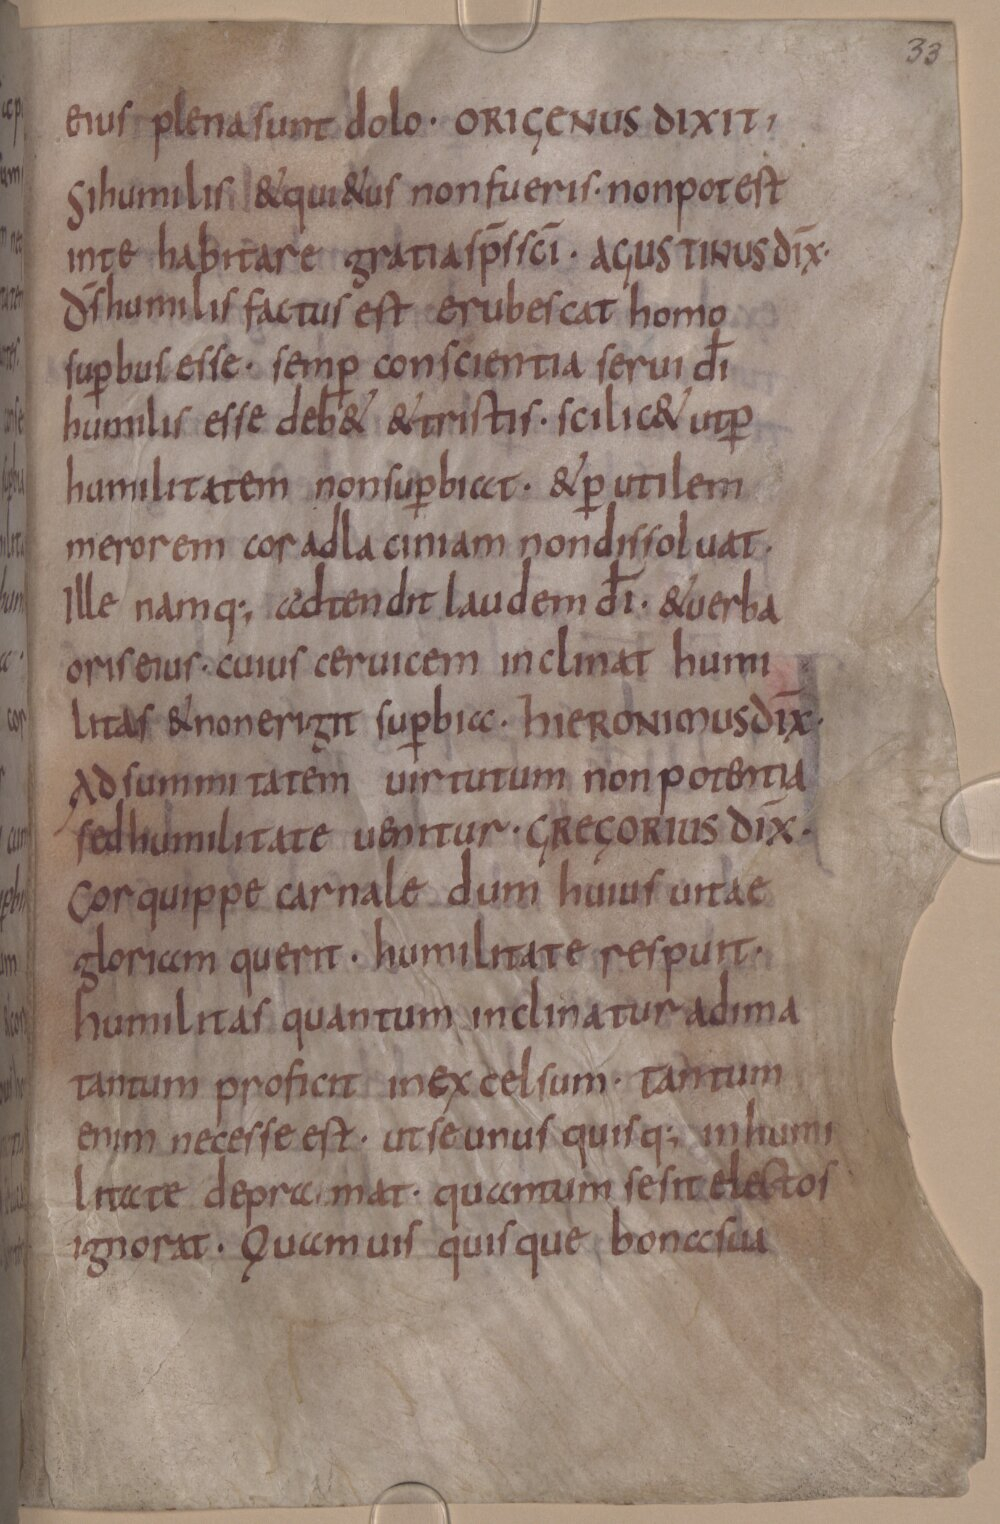 33
eius plena sunt dolo · ORIGENUS DIXIT,
Si humilis & qui&us non fueris · non potest
in te habitare gratia sp̄s sc̄i · AGUSTINUS DIX̄·
Dš humilis factus est erubescat homo
suꝑbus esse · semꝑ conscientia serui dī
humilis esse deb& & tristis · scilic& utꝑ
humilitatem non suꝑbiat · & ꝑ utilem
merorem cor ad laciniam non dissoluat ·
Ille namq; adtendit laudem dī · & uerba
oris eius · cuius ceruicem inclinat humi
litas & non erigit suꝑbia · HIERONIMUS DIX̄·
Ad summitatem uirtutum non potentia
sed humilitate uenitur · GREGORIUS DIX̄·
Cor quippe carnale dum huius uitae
gloriam querit · humilitate respuit ·
humilitas quantum inclinatur ad ima
tantum proficit in excelsum · tantum
enim necesse est · ut se unus quisq; in humi
litate depraimat · quantum se sit electos
ignorat · Quamuis quisque bona sua